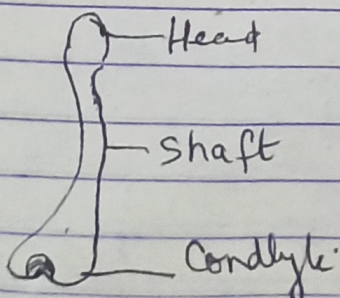 Head
Shaft
Condlyle